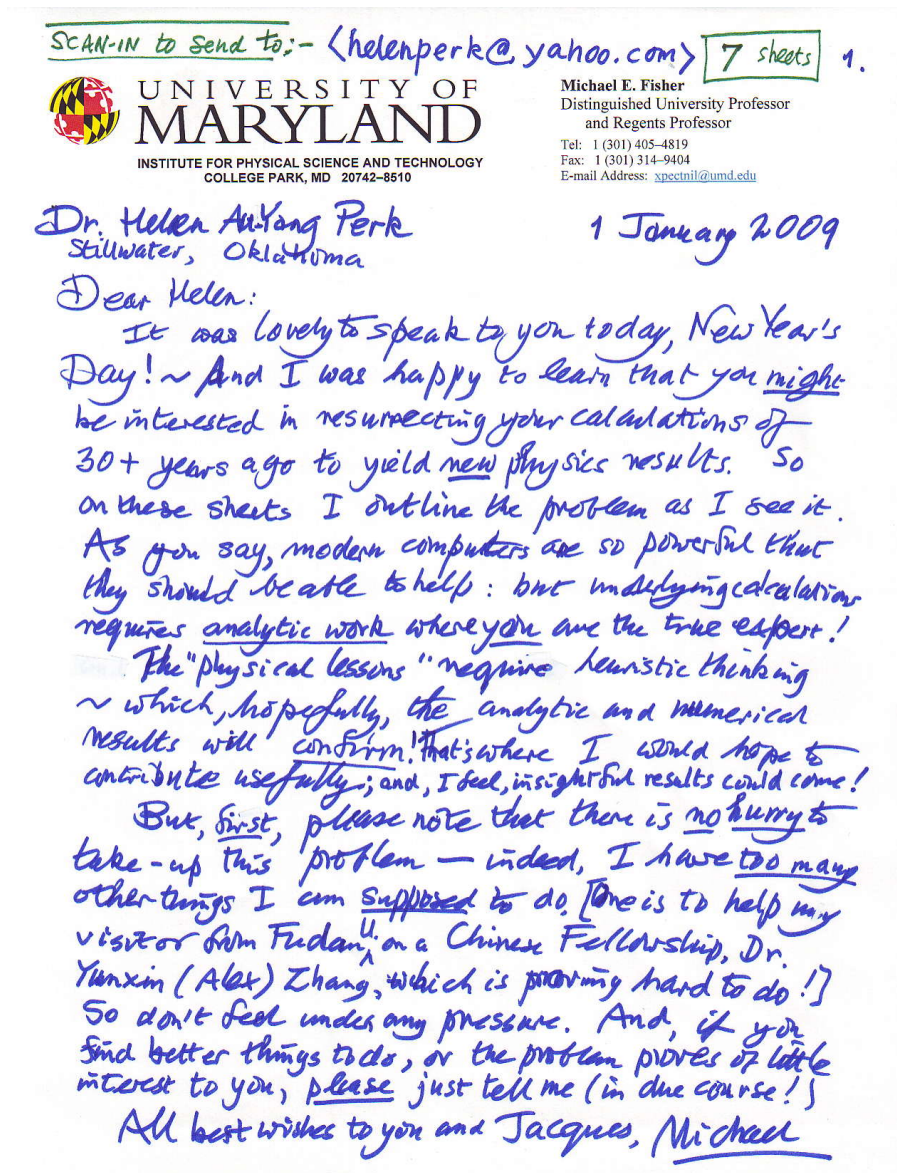 SCAN-IN to send to;- <helenperk@yahoo.com> 7 sheets 1.
UNIVERSITY OF
MARYLAND
INSTITUTE FOR PHYSICAL SCIENCE AND TECHNOLOGY
COLLEGE PARK, MD 20742–8510
Michael E. Fisher
Distinguished University Professor
and Regents Professor
Tel: 1 (301) 405–4819
Fax: 1 (301) 314–9404
E-mail Address: xpectnil@umd.edu
Dr. Helen Au-Yang Perk
Stillwater, Oklahoma
1 January 2009
Dear Helen:
It was lovely to speak to you today, New Year's
Day! ~ And I was happy to learn that you might
be interested in resurrecting your calculations of
30+ years ago to yield new physics results. So
on these sheets I outline the problem as I see it.
As you say, modern computers are so powerful that
they should be able to help: but underlying calculations
requires analytic work where you are the true expert!
The "physical lessons" require heuristic thinking
~ which, hopefully, the analytic and numerical
results will confirm! That's where I would hope to
contribute usefully; and, I feel, insightful results could come!
But, first, please note that there is no hurry to
take-up this problem — indeed, I have too many
other things I am supposed to do. [One is to help my
visitor from Fudan U. on a Chinese Fellowship, Dr.
Yunxin (Alex) Zhang, which is proving hard to do!]
So don't feel under any pressure. And, if you
find better things to do, or the problem proves of little
interest to you, please just tell me (in due course!)
All best wishes to you and Jacques, Michael